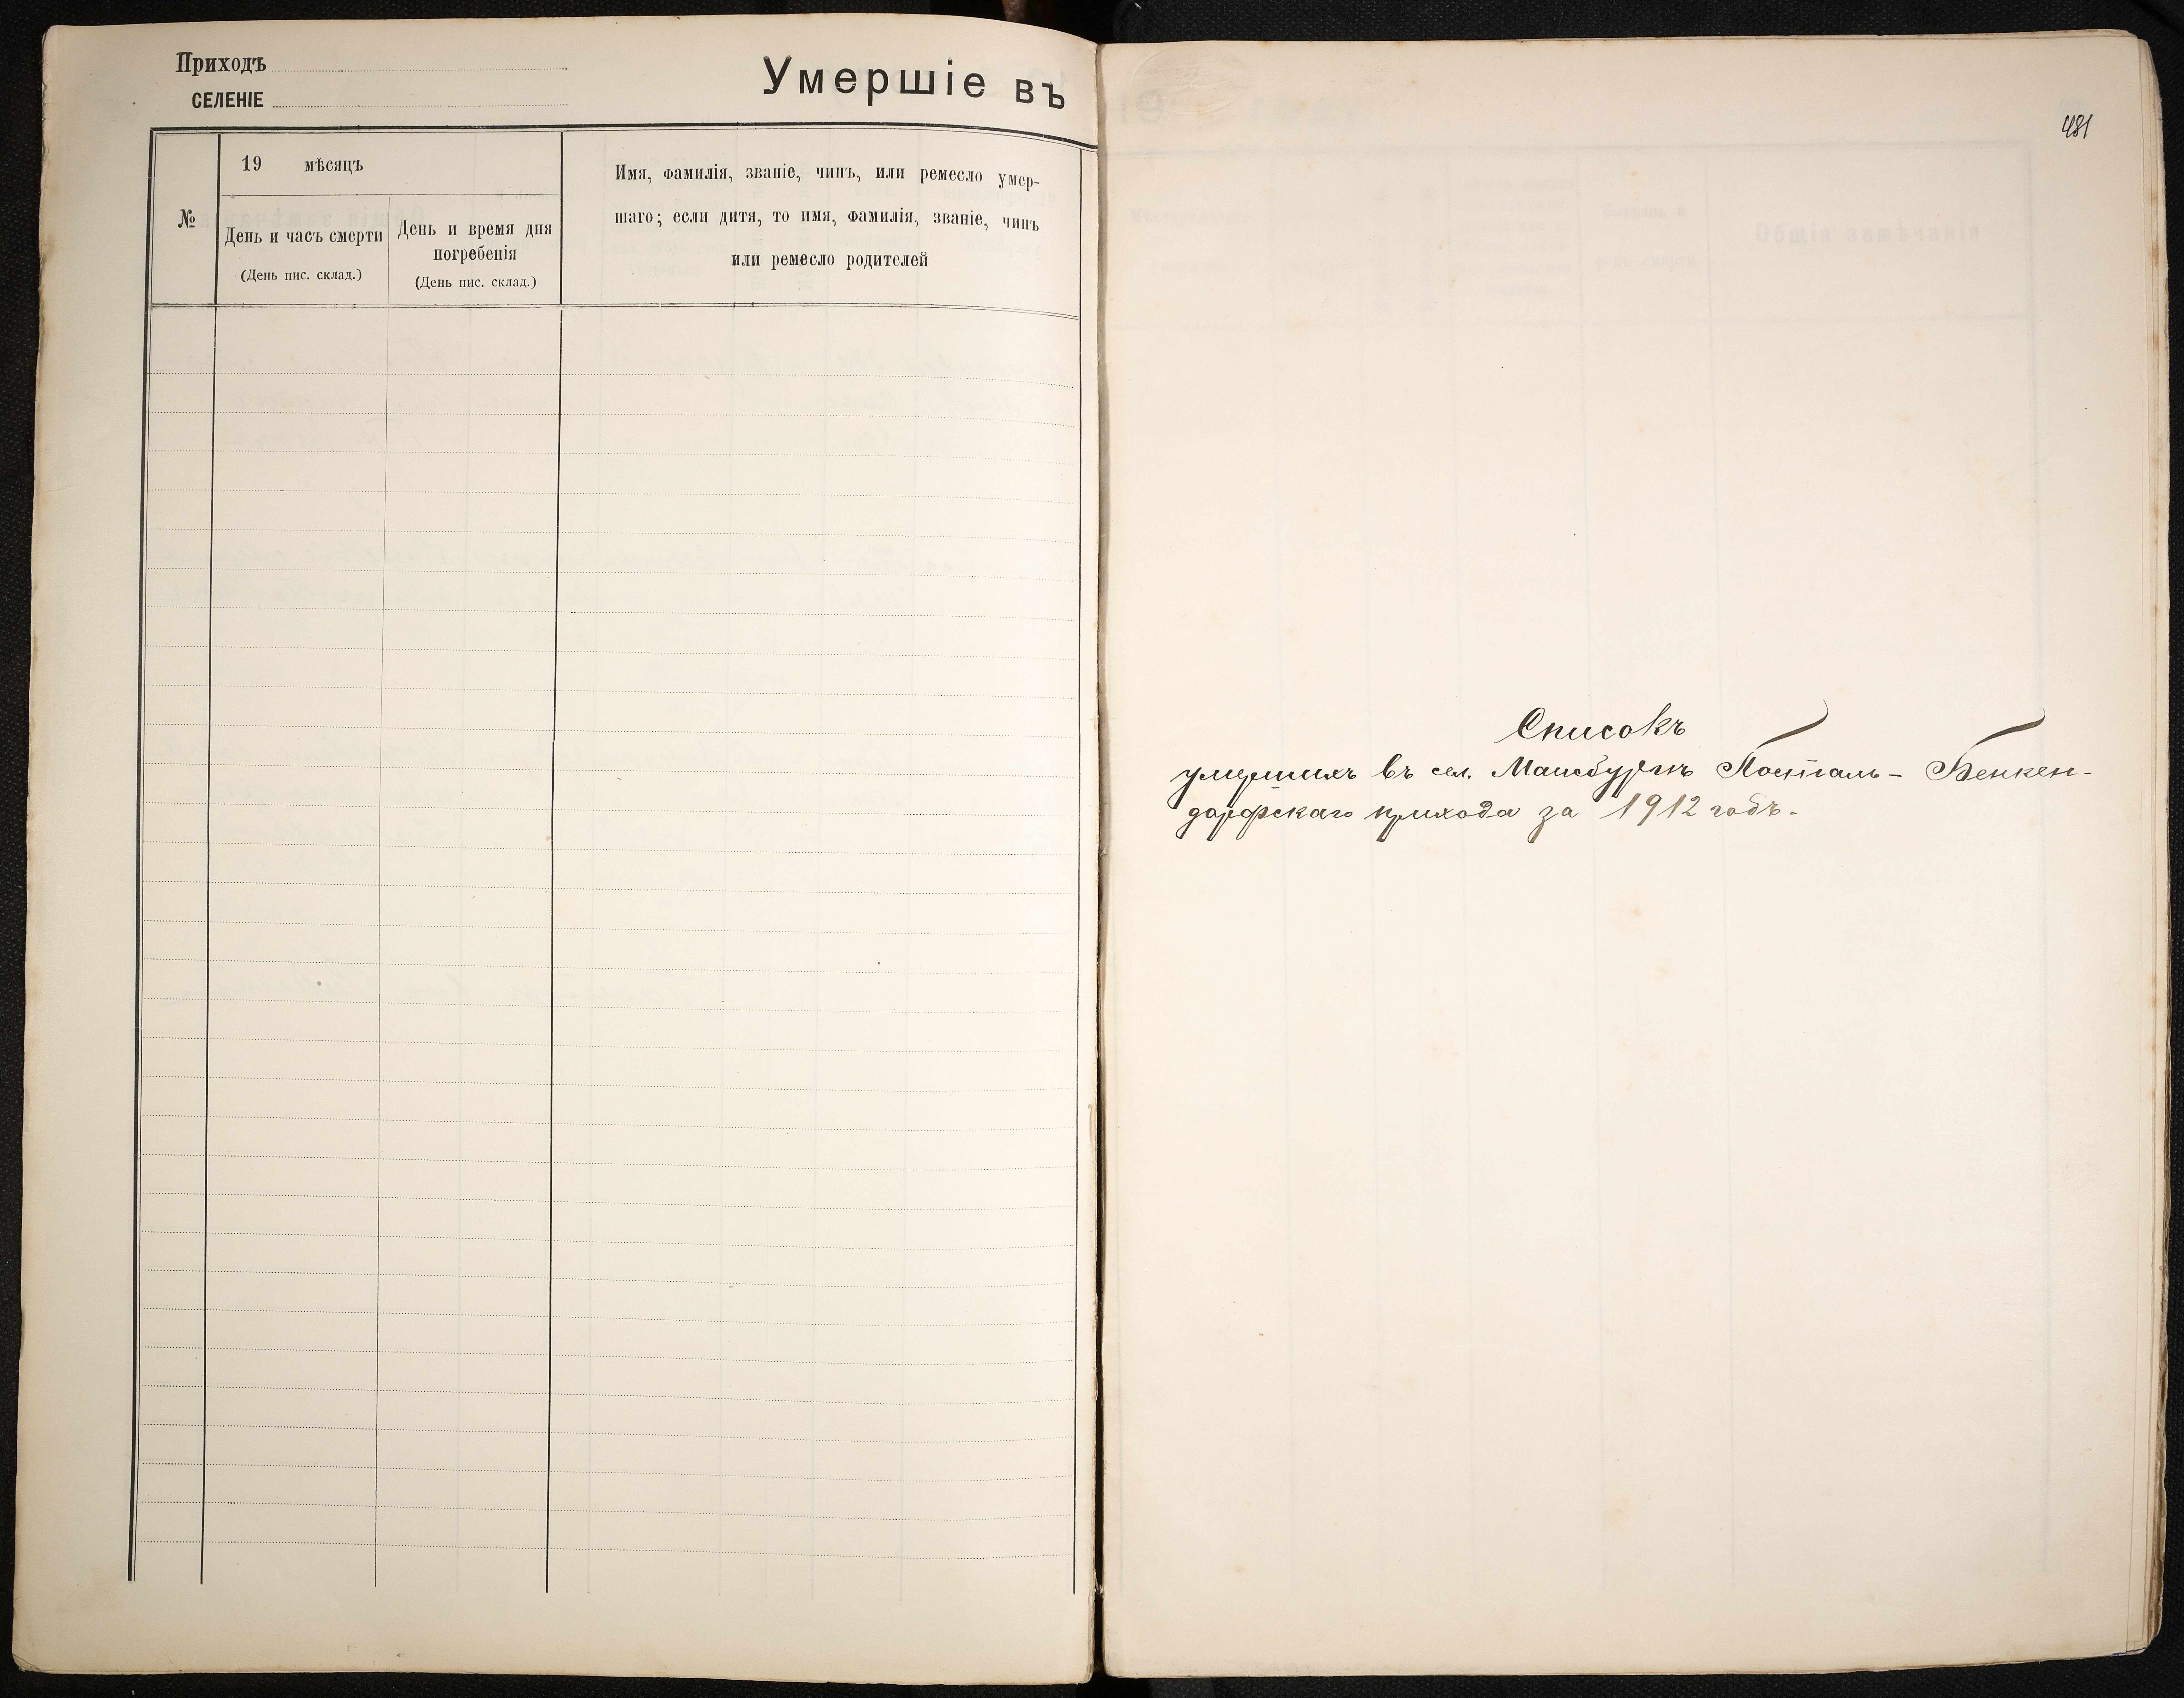 Приходъ
СЕЛЕНІЕ
Умершіе въ
№
19 мѣсяцъ
День и часъ смерти
(День пис. склад.)
День и время дня
погребенія
(День пис. склад.)
Имя, фамилія, званіе, чинъ, или ремесло умер-
шаго; если дитя, то имя, фамилія, званіе, чинъ
или ремесло родителей
481
Списокъ
умершихъ въ сел. Мансбургъ Посталь- Бенкен-
дорфскаго прихода за 1912 годъ.